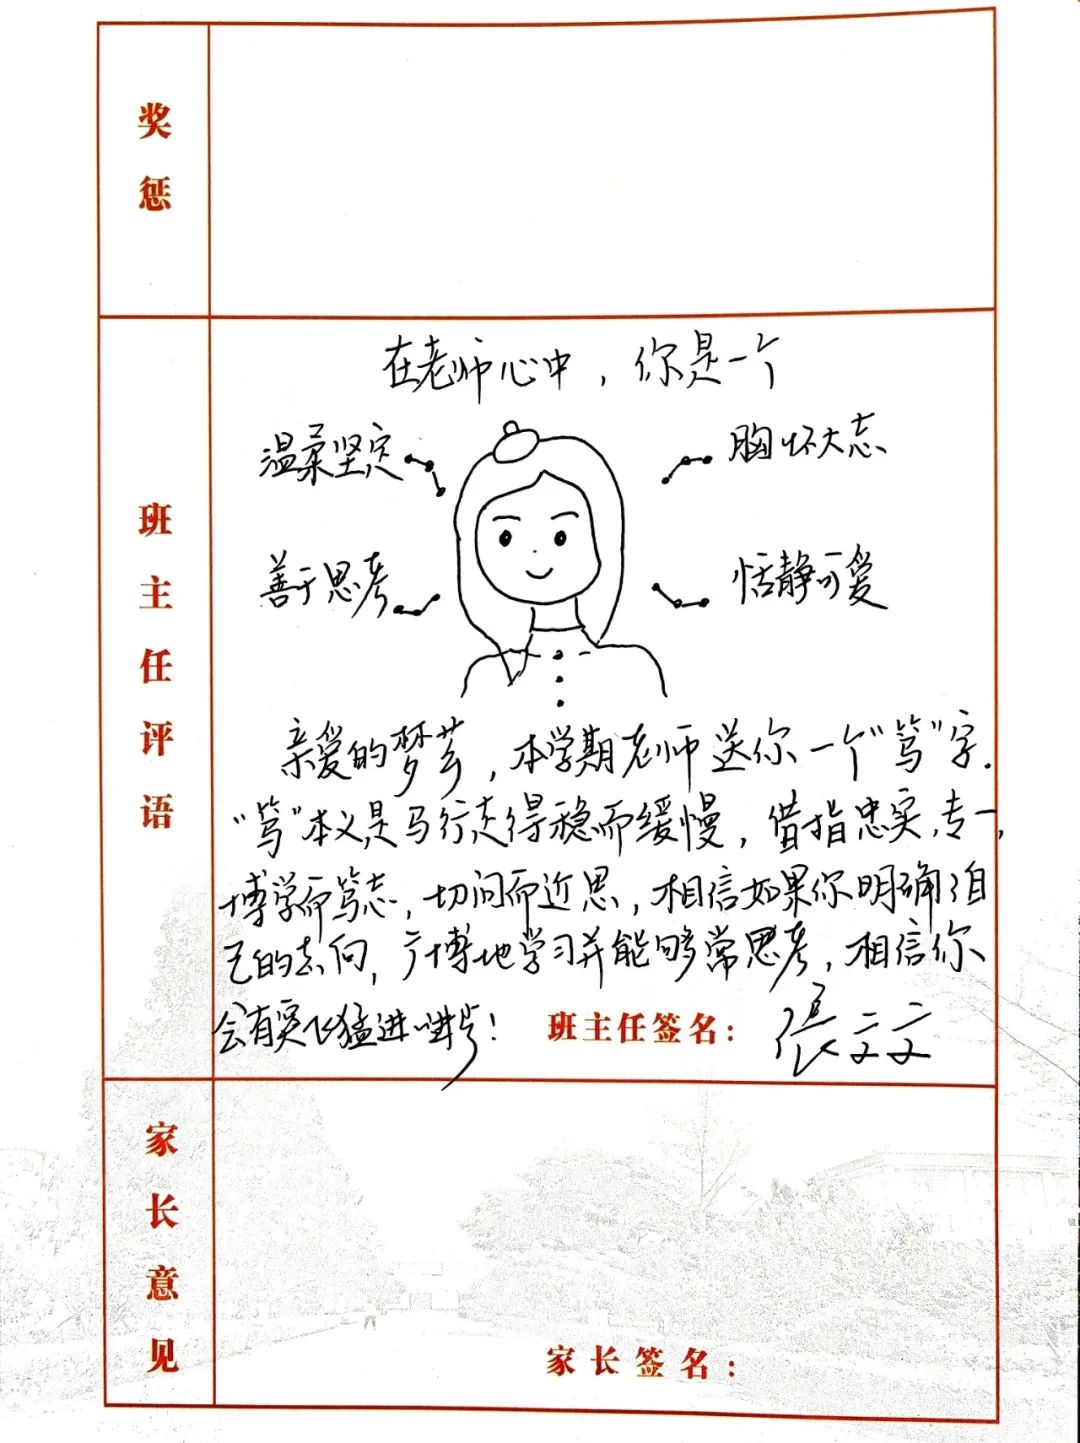 奖惩
在老师心中，你是一个
温柔坚定
胸怀大志
善于思考
恬静可爱
班主任评语
亲爱的梦芸，本学期老师送你一个“笃”字.
“笃”本义是马行走得稳而缓慢，借指忠实,专一,
博学而笃志，切问而近思，相信如果你明确自
己的志向，广博地学习并能够常思考，相信你
会有突飞猛进的进步！
班主任签名：张文文
家长意见
家长签名：